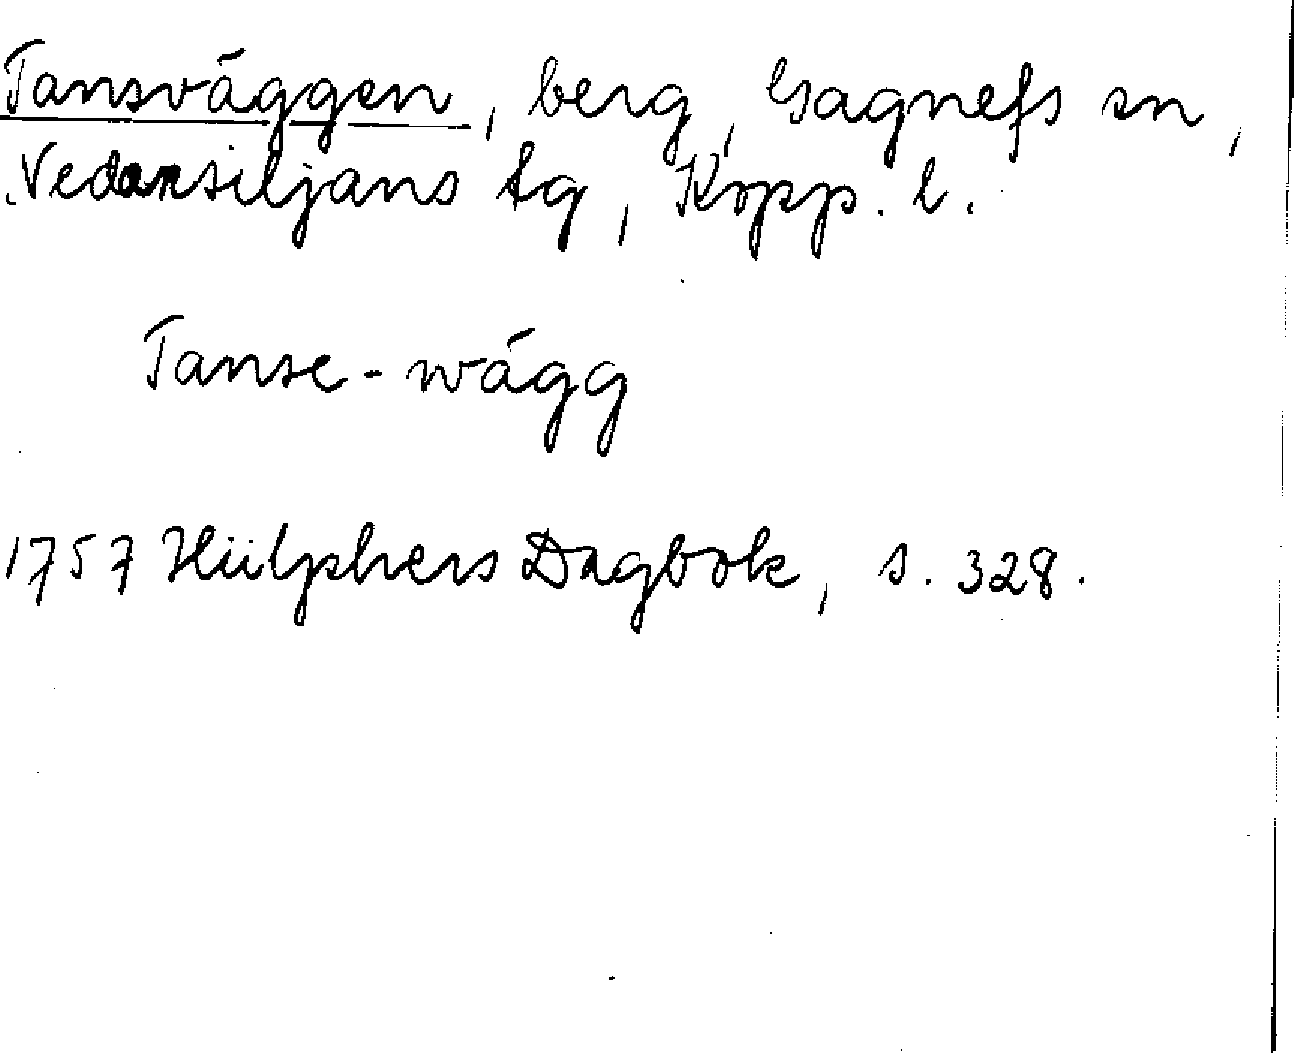 Tansväggen, berg, Gagnefs sn,
Nedansiljans tg, Kopp. l.
Tanse-wägg
1757 Hülphers Dagbok, s. 328.